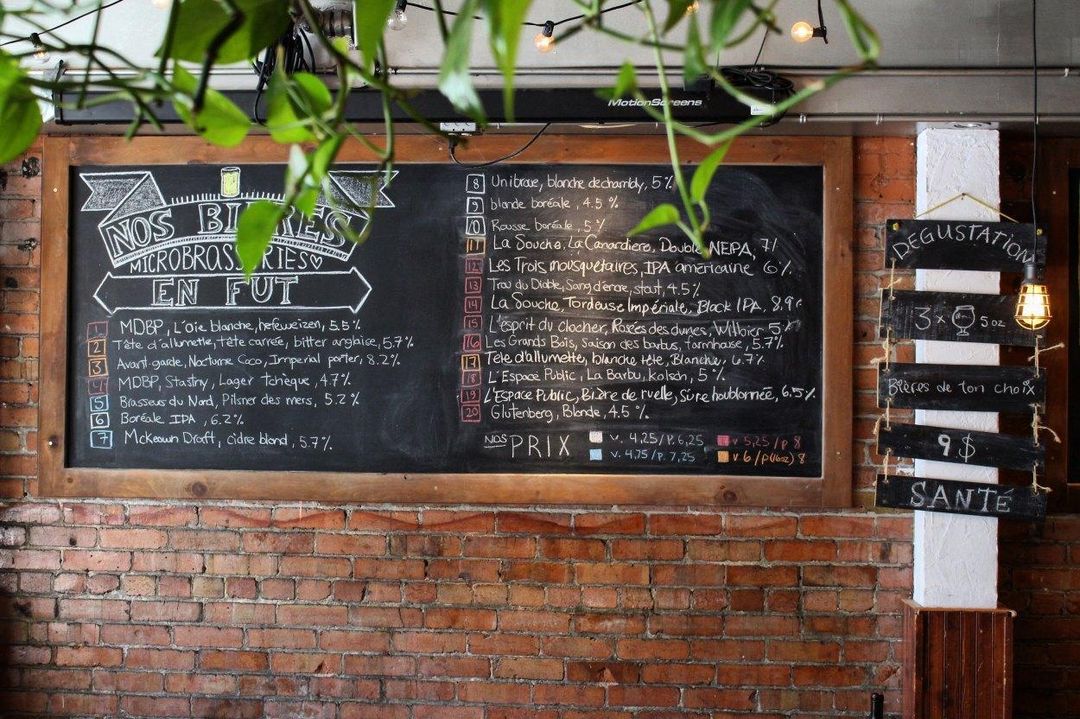 MotionScreens
NOS BIÈRES
MICROBRASSERIES
EN FUT
1 MDBP, L'oie blanche, hefeweizen, 5.5%
2 Tête d'allumette, tête carrée, bitter anglaise, 5.7%
3 Avant-garde, Nocturne Coco, Imperial porter, 8.2%
4 MDBP, Stastny, Lager Tchèque, 4.7%
5 Brasseurs du Nord, Pilsner des mers, 5.2%
6 Boréale IPA, 6.2%
7 Mckeown Draft, cidre blond, 5.7%
8 Unibroue, blanche de chambly, 5%
9 blonde boréale, 4.5%
10 Rousse boréale, 5%
11 La Souche, La Canardière, Double NEPA, 7%
12 Les Trois mousquetaires, IPA américaine 6%
13 Trou du Diable, Sang d'encre, stout, 4.5%
14 La Souche, Tordeuse Impériale, Black IPA, 8.9%
15 L'esprit du clocher, Rosées des dunes, Witbier 5%
16 Les Grands Bois, Saison des barbus, farmhouse, 5.7%
17 Tête d'allumette, blanche tête, Blanche, 6.7%
18 L'Espace Public, La Barbu, Kolsch, 5%
19 L'Espace Public, Bière de ruelle, Sûre houblonnée, 6.5%
20 Glutenberg, Blonde, 4.5%
NOS PRIX
V. 4,25/P. 6,25
V 5,25/P 8
V. 4,75/P. 7,25
V 6/P(16oz) 8
DEGUSTATION
3 x 5oz
Bières de ton choix
9 $
SANTÉ